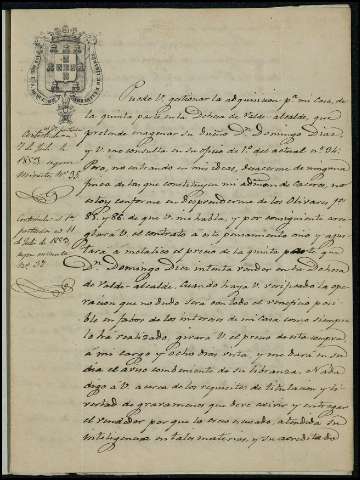 Puede V. gestionar la adquisicion p.ª mi Casa, de
la quinta parte en la Dehesa de Valde-alcalde, que
pretende enagenar su dueño Dn. Domingo Diaz
y V. me consulta en su oficio de 1.º del actual nº 34.
Pero, no entrando en mis ideas, desacerme de ninguna
finca de las que constituyen mi admon. de Caceres, no
estoy conforme en desprenderme de los Olivares nos.
85, y 86 de que V. me habla, y por consiguiente arre-
glará V. el contrato a este pensamiento mio y ajus-
tará á metalico el precio de la quinta parte que
Dn. Domingo Diaz intenta vender en la Dehesa
de Valde-alcalde. Cuando haya V. verificado la ope-
racion que no dudo será con todo el beneficio posi-
ble en fabor de los intereses de mi Casa como siempre
lo ha realizado, girará V. el precio de esta compra
á mi cargo y ocho dias vista, y me dará en su
dia el aviso combeniente de su libranza. Nada
digo á V. acerca de los requisitos de titulacion y li-
vertad de gravamenes que debe exivir y entregar
el vendedor por que lo creo escusado, atendida su
inteligencia en tales materias, y su acreditado
7 de Julio de
1853, segun
minuta nº 36
Contestada
de Julio de 1853
segun minuta
nº 37